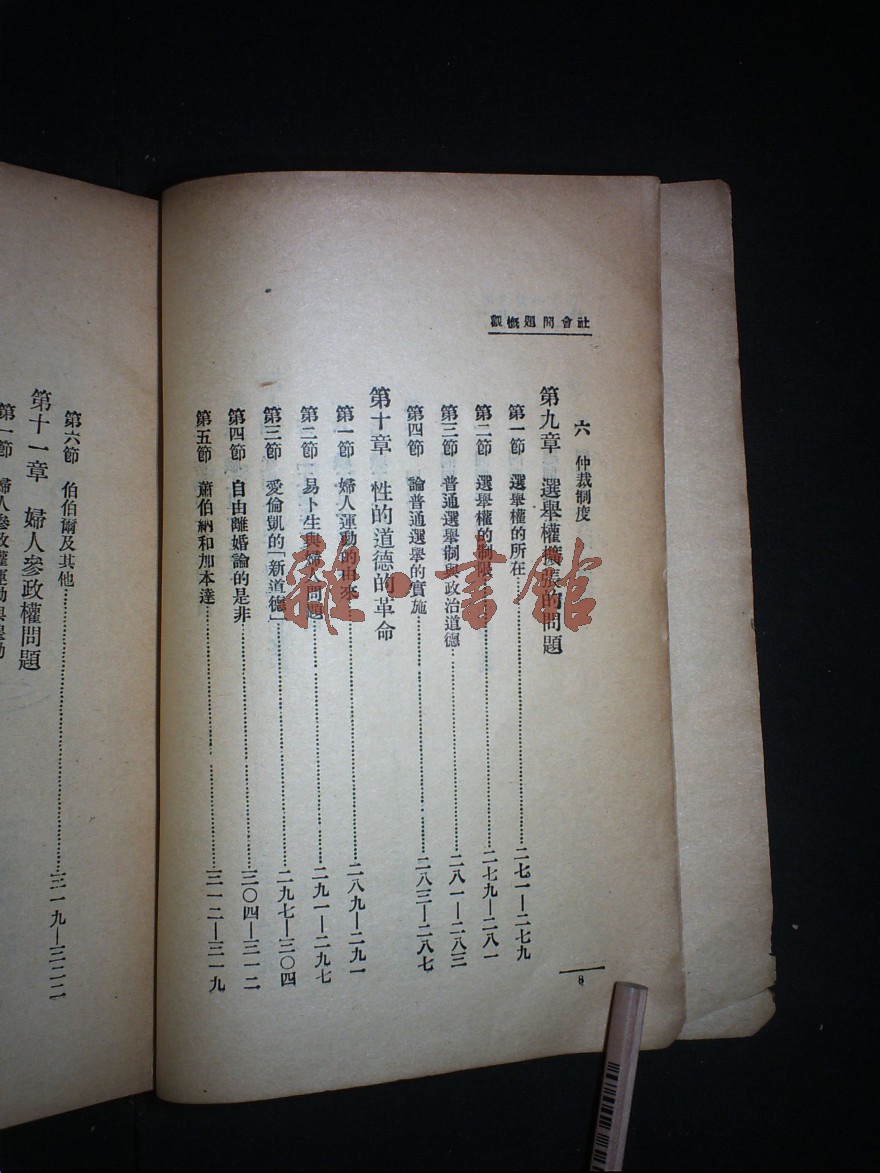 社會問題概觀
六 仲裁制度
第九章 選舉權擴張的問題
第一節 選舉權的所在………二七一—二七九
第二節 選舉權的制限………二七九—二八一
第三節 普通選舉制與政治道德………二八一—二八三
第四節 論普通選舉的實施………二八三—二八七
第十章 性的道德的革命
第一節 婦人運動的由來………二八九—二九一
第二節 易卜生與婦人問題………二九一—二九七
第三節 愛倫凱的「新道德」………二九七—三〇四
第四節 自由離婚論的是非………三〇四—三一二
第五節 蕭伯納和加本達………三一二—三一九
8
第六節 伯伯爾及其他………三一九—三二二
第十一章 婦人參政權問題
第一節 婦人參政權運動
雜·書館